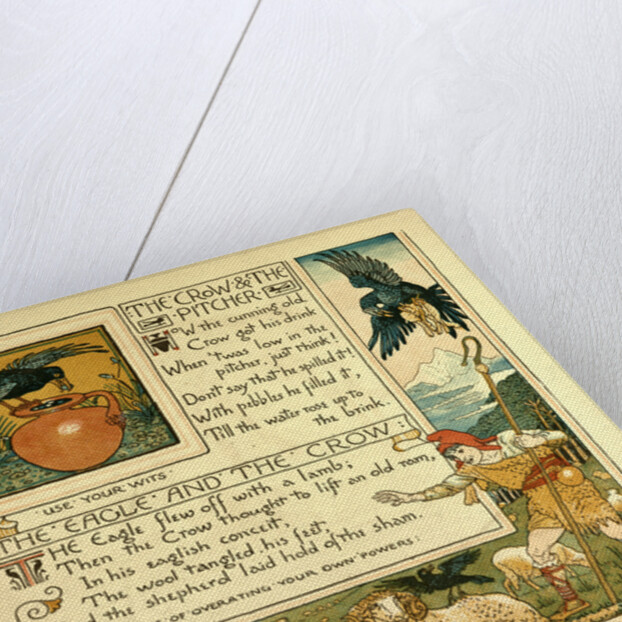 THE CROW & THE
· PITCHER ·
HOW the cunning old
Crow got his drink
When 'twas low in the
pitcher, just think!
Don't say that he spilled it!
With pebbles he filled it,
Till the water rose up to
the brink.
USE · YOUR · WITS ·
THE · EAGLE · AND · THE · CROW :
THE Eagle flew off with a lamb;
Then the Crow thought to lift an old ram,
In his eaglish conceit,
The wool tangled his feet,
the shepherd laid hold of the sham.
OF · OVERATING · YOUR · OWN · POWERS :